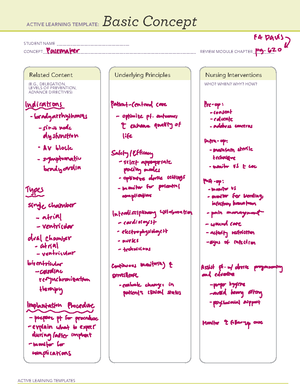 ACTIVE LEARNING TEMPLATE: Basic Concept
FA DAVIS
STUDENT NAME
CONCEPT Pacemaker
REVIEW MODULE CHAPTER pg. 620
Related Content
(E.G., DELEGATION,
LEVELS OF PREVENTION,
ADVANCE DIRECTIVES)
Indications
- bradyarrhythmias
- sinus node
dysfunction
- AV block
- symptomatic
bradycardia
Types
single chamber
- atrial
- ventricular
dual chamber
- atrial
- ventricular
biventricular
- cardiac
resynchronization
therapy
Implantation Procedure
- prepare pt for procedure
- explain what to expect
during/after implant
- monitor for
complications
Underlying Principles
Patient-centered care
- optimize pt. outcomes
& enhance quality of
life
Safety/Efficacy
- select appropriate
pacing modes
- optimize device settings
- monitor for potential
complications
Interdisciplinary collaboration
- cardiologist
- electrophysiologist
- nurses
- technicians
Continuous monitoring &
surveillance
- evaluate changes in
patient's clinical status
Nursing Interventions
WHO? WHEN? WHY? HOW?
Pre-op:
- consent
- educate
- address concerns
Intra-op:
- maintain sterile
technique
- monitor VS & ECG
Post-op:
- monitor VS
- monitor for bleeding,
infection, hematoma
- pain management
- wound care
- activity restriction
- signs of infection
Assist pt w/ device programming
and education
- proper hygiene
- avoid heavy lifting
- psychosocial support
Monitor & follow-up care
ACTIVE LEARNING TEMPLATES